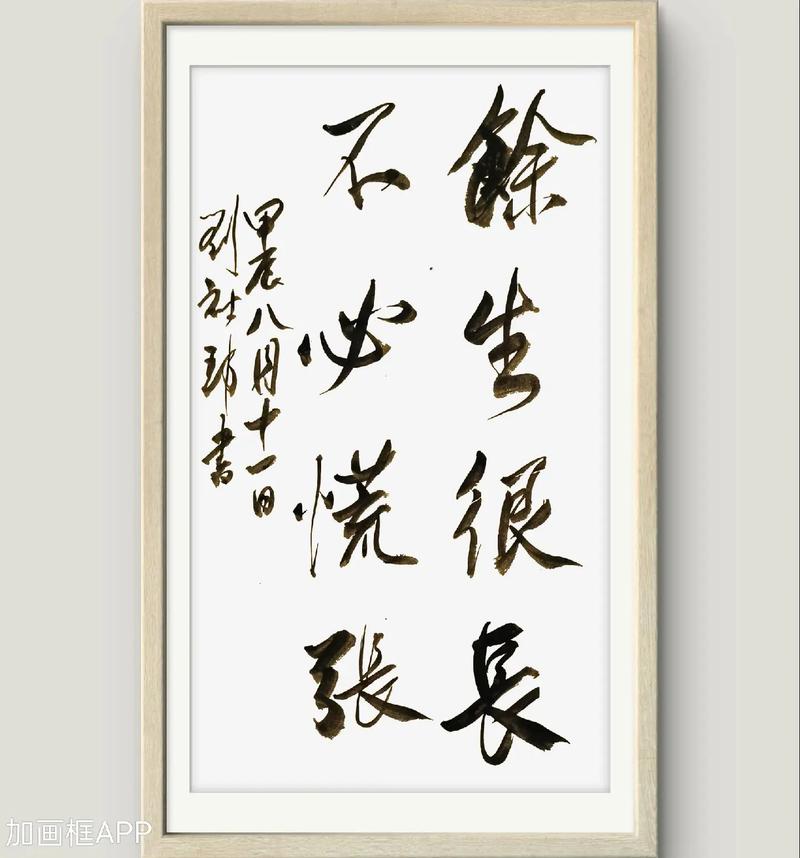 餘生很長
不必慌張
甲辰八月十一日
劉社瑋書
加画框APP